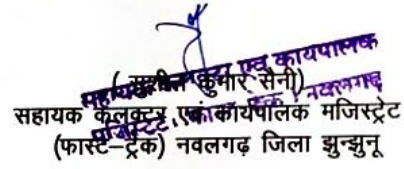 (सुशील कुमार सैनी)
सहायक कलक्टर एवं कार्यपालक मजिस्ट्रेट
(फास्ट-ट्रेक) नवलगढ़ जिला झुन्झुनू
सहायक कलक्टर एवं कार्यपालक
मजिस्ट्रेट, नवलगढ़